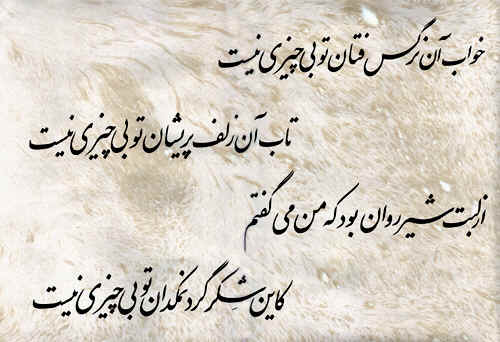 خواب آن نرگس فتان تو بی چیزی نیست
تاب آن زلف پریشان تو بی چیزی نیست
از لبت شیر روان بود که من می گفتم
کاین شکر گرد نمکدان تو بی چیزی نیست